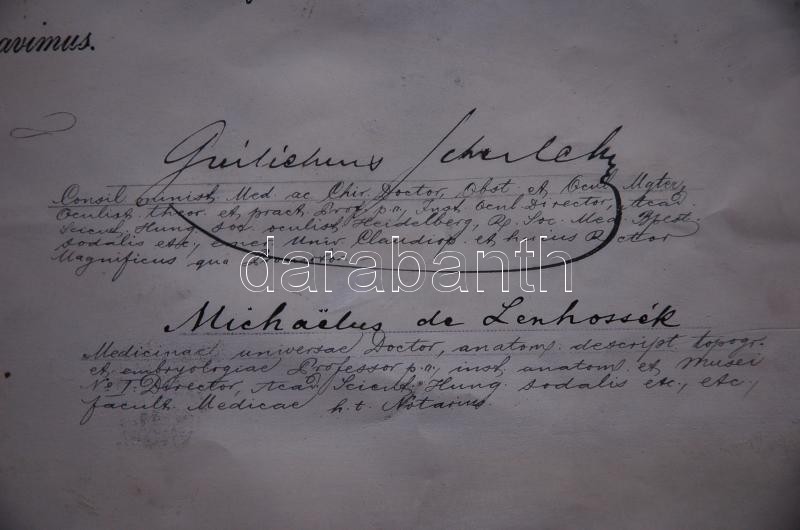 avimus.
Guilielmus
Consil minist. Med. ac Chir. Doctor, Obst. et Ocul. Mgter,
Oculist. theor. et pract. Prof. p. o., Inst. Ocul. Director, Acad.
Scient. Hung. Soc. oculist. Heidelberg, R. Soc. Med. Bpest.
sodalis etc., Univ. Claudiop. et huius Rector
Magnificus qua
darabanth
Michaëlus de Lenhossék
Medicinae universae Doctor, anatom. descript. topogr.
et embryologiae Professor p. o., inst. anatom. et musei
No I. Director, Acad. Scient. Hung. sodalis etc., etc.,
facult. Medicae h. t. Notarius.